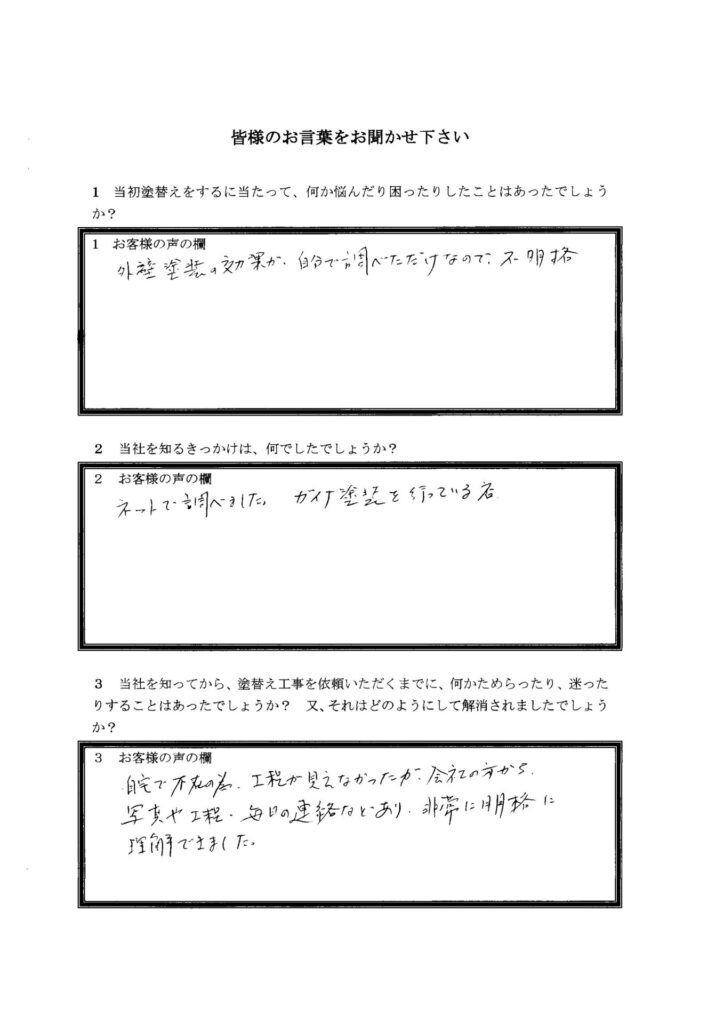 皆様のお言葉をお聞かせ下さい
1 当初塗替えをするに当たって、何か悩んだり困ったりしたことはあったでしょう
か?
1 お客様の声の欄
外壁塗装の効果が、自分で調べただけなので、不明格
2 当社を知るきっかけは、何でしたでしょうか?
2 お客様の声の欄
ネットで調べました。 ガイナ塗装を行っている
3 当社を知ってから、塗替え工事を依頼いただくまでに、何かためらったり、迷った
りすることはあったでしょうか? 又、それはどのようにして解消されましたでしょう
か?
3 お客様の声の欄
自宅で不在の為、工程が見えなかったが、会社の方から、
写真や工程・毎日の連絡などあり、非常に明格に
理解できました。